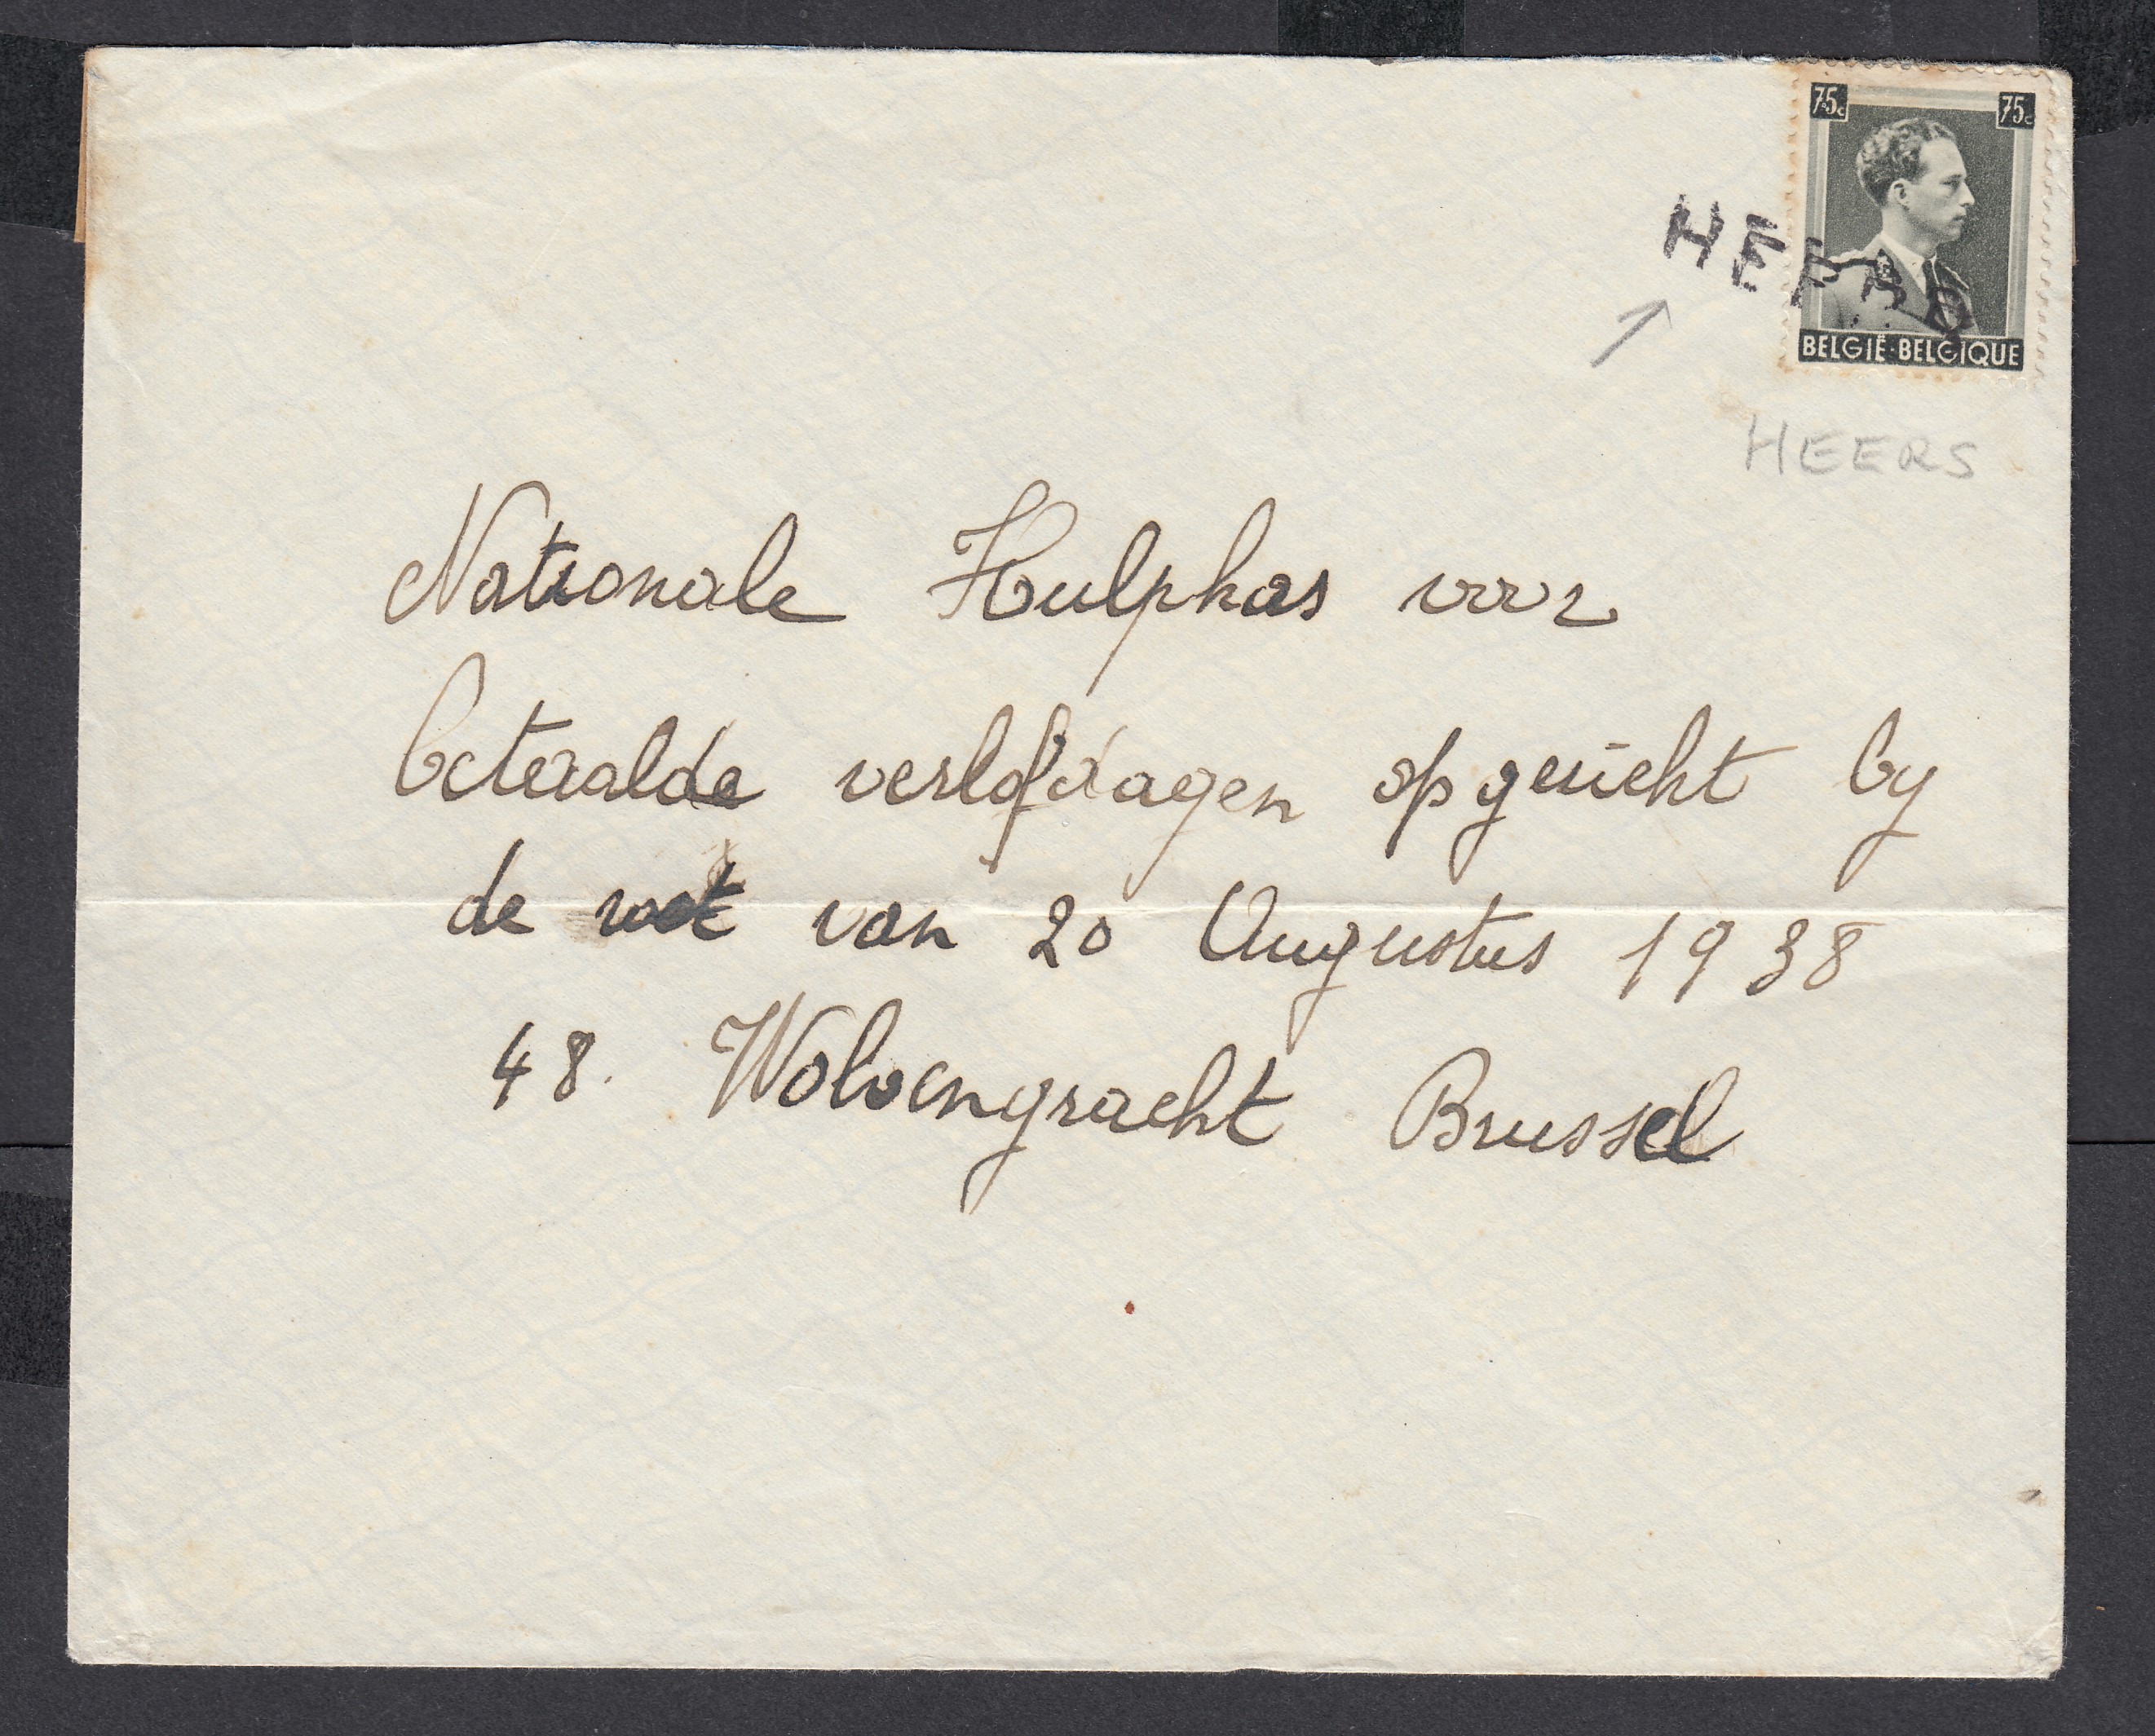 75c 75c
HEERS
BELGIË-BELGIQUE
HEERS
Nationale Hulpkas voor
betaalde verlofdagen opgericht by
de wet van 20 Augustus 1938
48. Wolvengracht Brussel